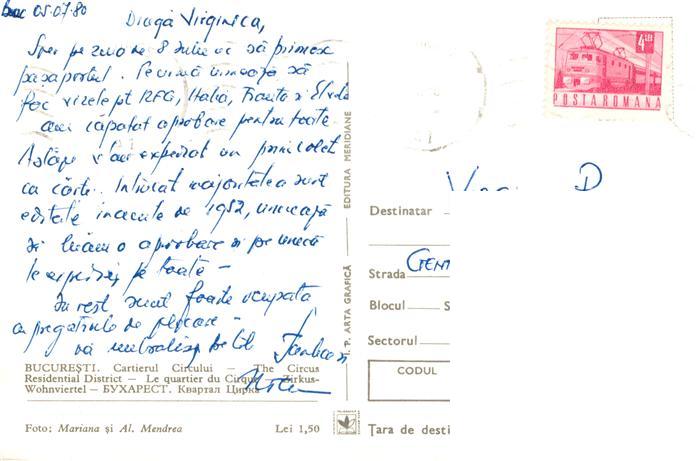 Buc 05.07.80
Dragă Virginica,
Sper pe ziua de 8 Iulie ac să primesc
pașaportul. Pe urmă urmează să
fac vizele pt RFG, Italia, Franța și
am căpătat aprobare pentru toate.
v'am expediat un
cu cărți. Întrucât majoritatea sunt
editate înainte de 1952, urmează
să luăm o aprobare și pe urmă
le expediez pe toate –
În rest sunt foarte ocupată
cu pregătirile de plecare –
vă
BUCUREȘTI. Cartierul Circului — The Circus
Residential District — Le quartier du Cirque — Zirkus-
Wohnviertel — БУХАРЕСТ. Квартал Цирка
Foto: Mariana și Al. Mendrea Lei 1,50
I. P. ARTA GRAFICĂ EDITURA MERIDIANE
4 LEI
POSTA ROMANA
Destinatar
Strada
Blocul S
Sectorul
CODUL
Țara de desti